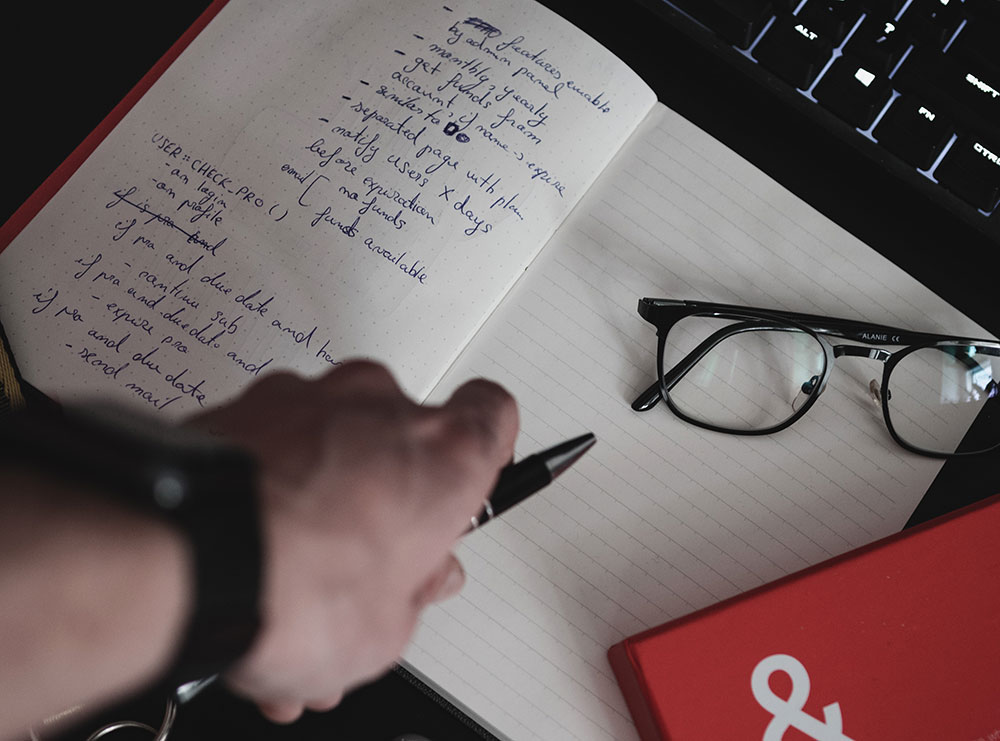 - features enable
by admin panel
- monthly, yearly
- get funds from
account, if name → expire
- similar to DO
- separated page with plan
- notify users X days
before expiration
email [ no funds
funds available
USER::CHECK_PRO()
- on login
- on profile
if is pro and
if pro and due date and
- continue sub
if pro and due date and
- expire pro
if pro and due date
- send mail
ALT
?
FN
SHIFT
CTRL
ALANIE CE
&